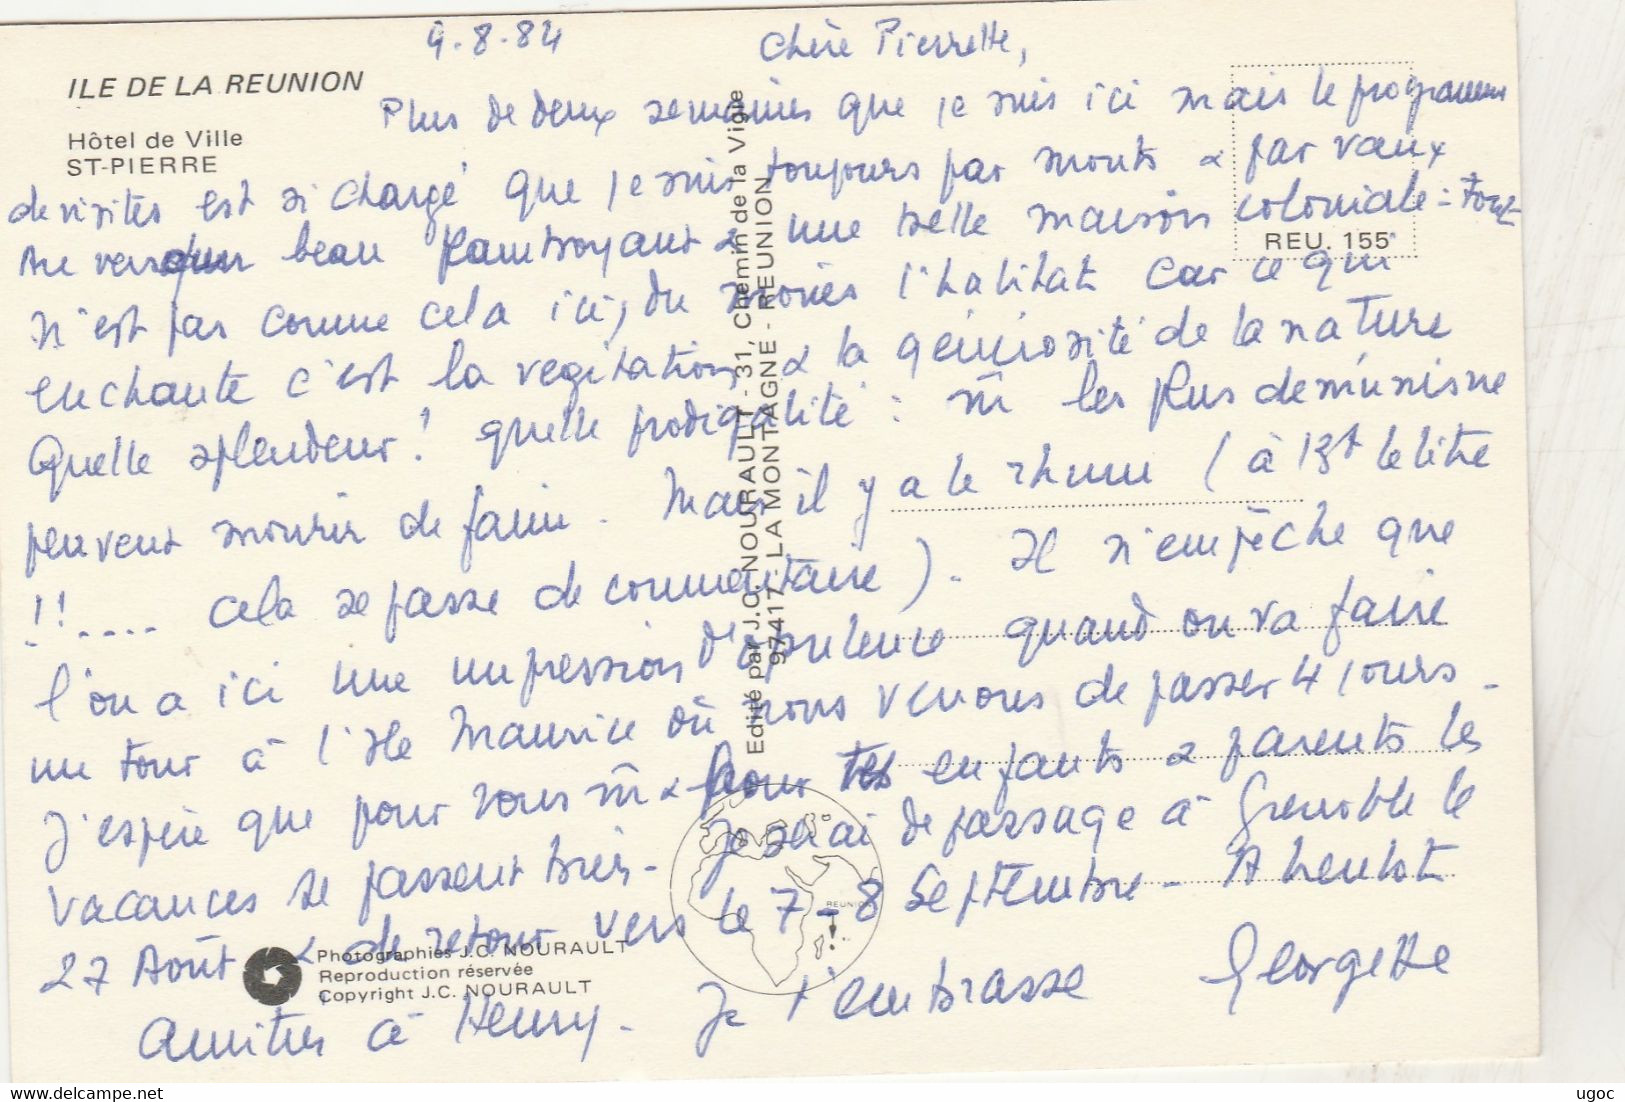 4.8.84
Chère Pierrette,
ILE DE LA REUNION
Hôtel de Ville
ST-PIERRE
REU. 155
Plus de deux semaines que je suis ici mais le programme
de visites est si chargé que je suis toujours par monts & par vaux
beau flamboyant & une belle maison coloniale : tout
n'est pas comme cela ici, du moins l'habitat car ce qui
enchante c'est la végétation & la générosité de la nature
Quelle splendeur ! quelle prodigalité : m̄ les plus démunis ne
peuvent mourir de faim. Mais il y a le rhum (à 13f le litre
!!.... cela se passe de commentaire). Il n'empêche que
l'on a ici une impression d'opulence quand on va faire
un tour à l'Ile Maurice où nous venons de passer 4 jours.
J'espère que pour vous m̄ & pour tes enfants & parents les
vacances se passent bien. Je serai de passage à Grenoble le
27 Août & de retour vers le 7-8 Septembre. A bientôt
Amitiés à Henry. Je t'embrasse Georgette
Edité par J.C. NOURAULT - 31, Chemin de la Vigie
97417 LA MONTAGNE - REUNION
REUNION
Photographies J.C. NOURAULT
Reproduction réservée
Copyright J.C. NOURAULT
delcampe.net
ugoc